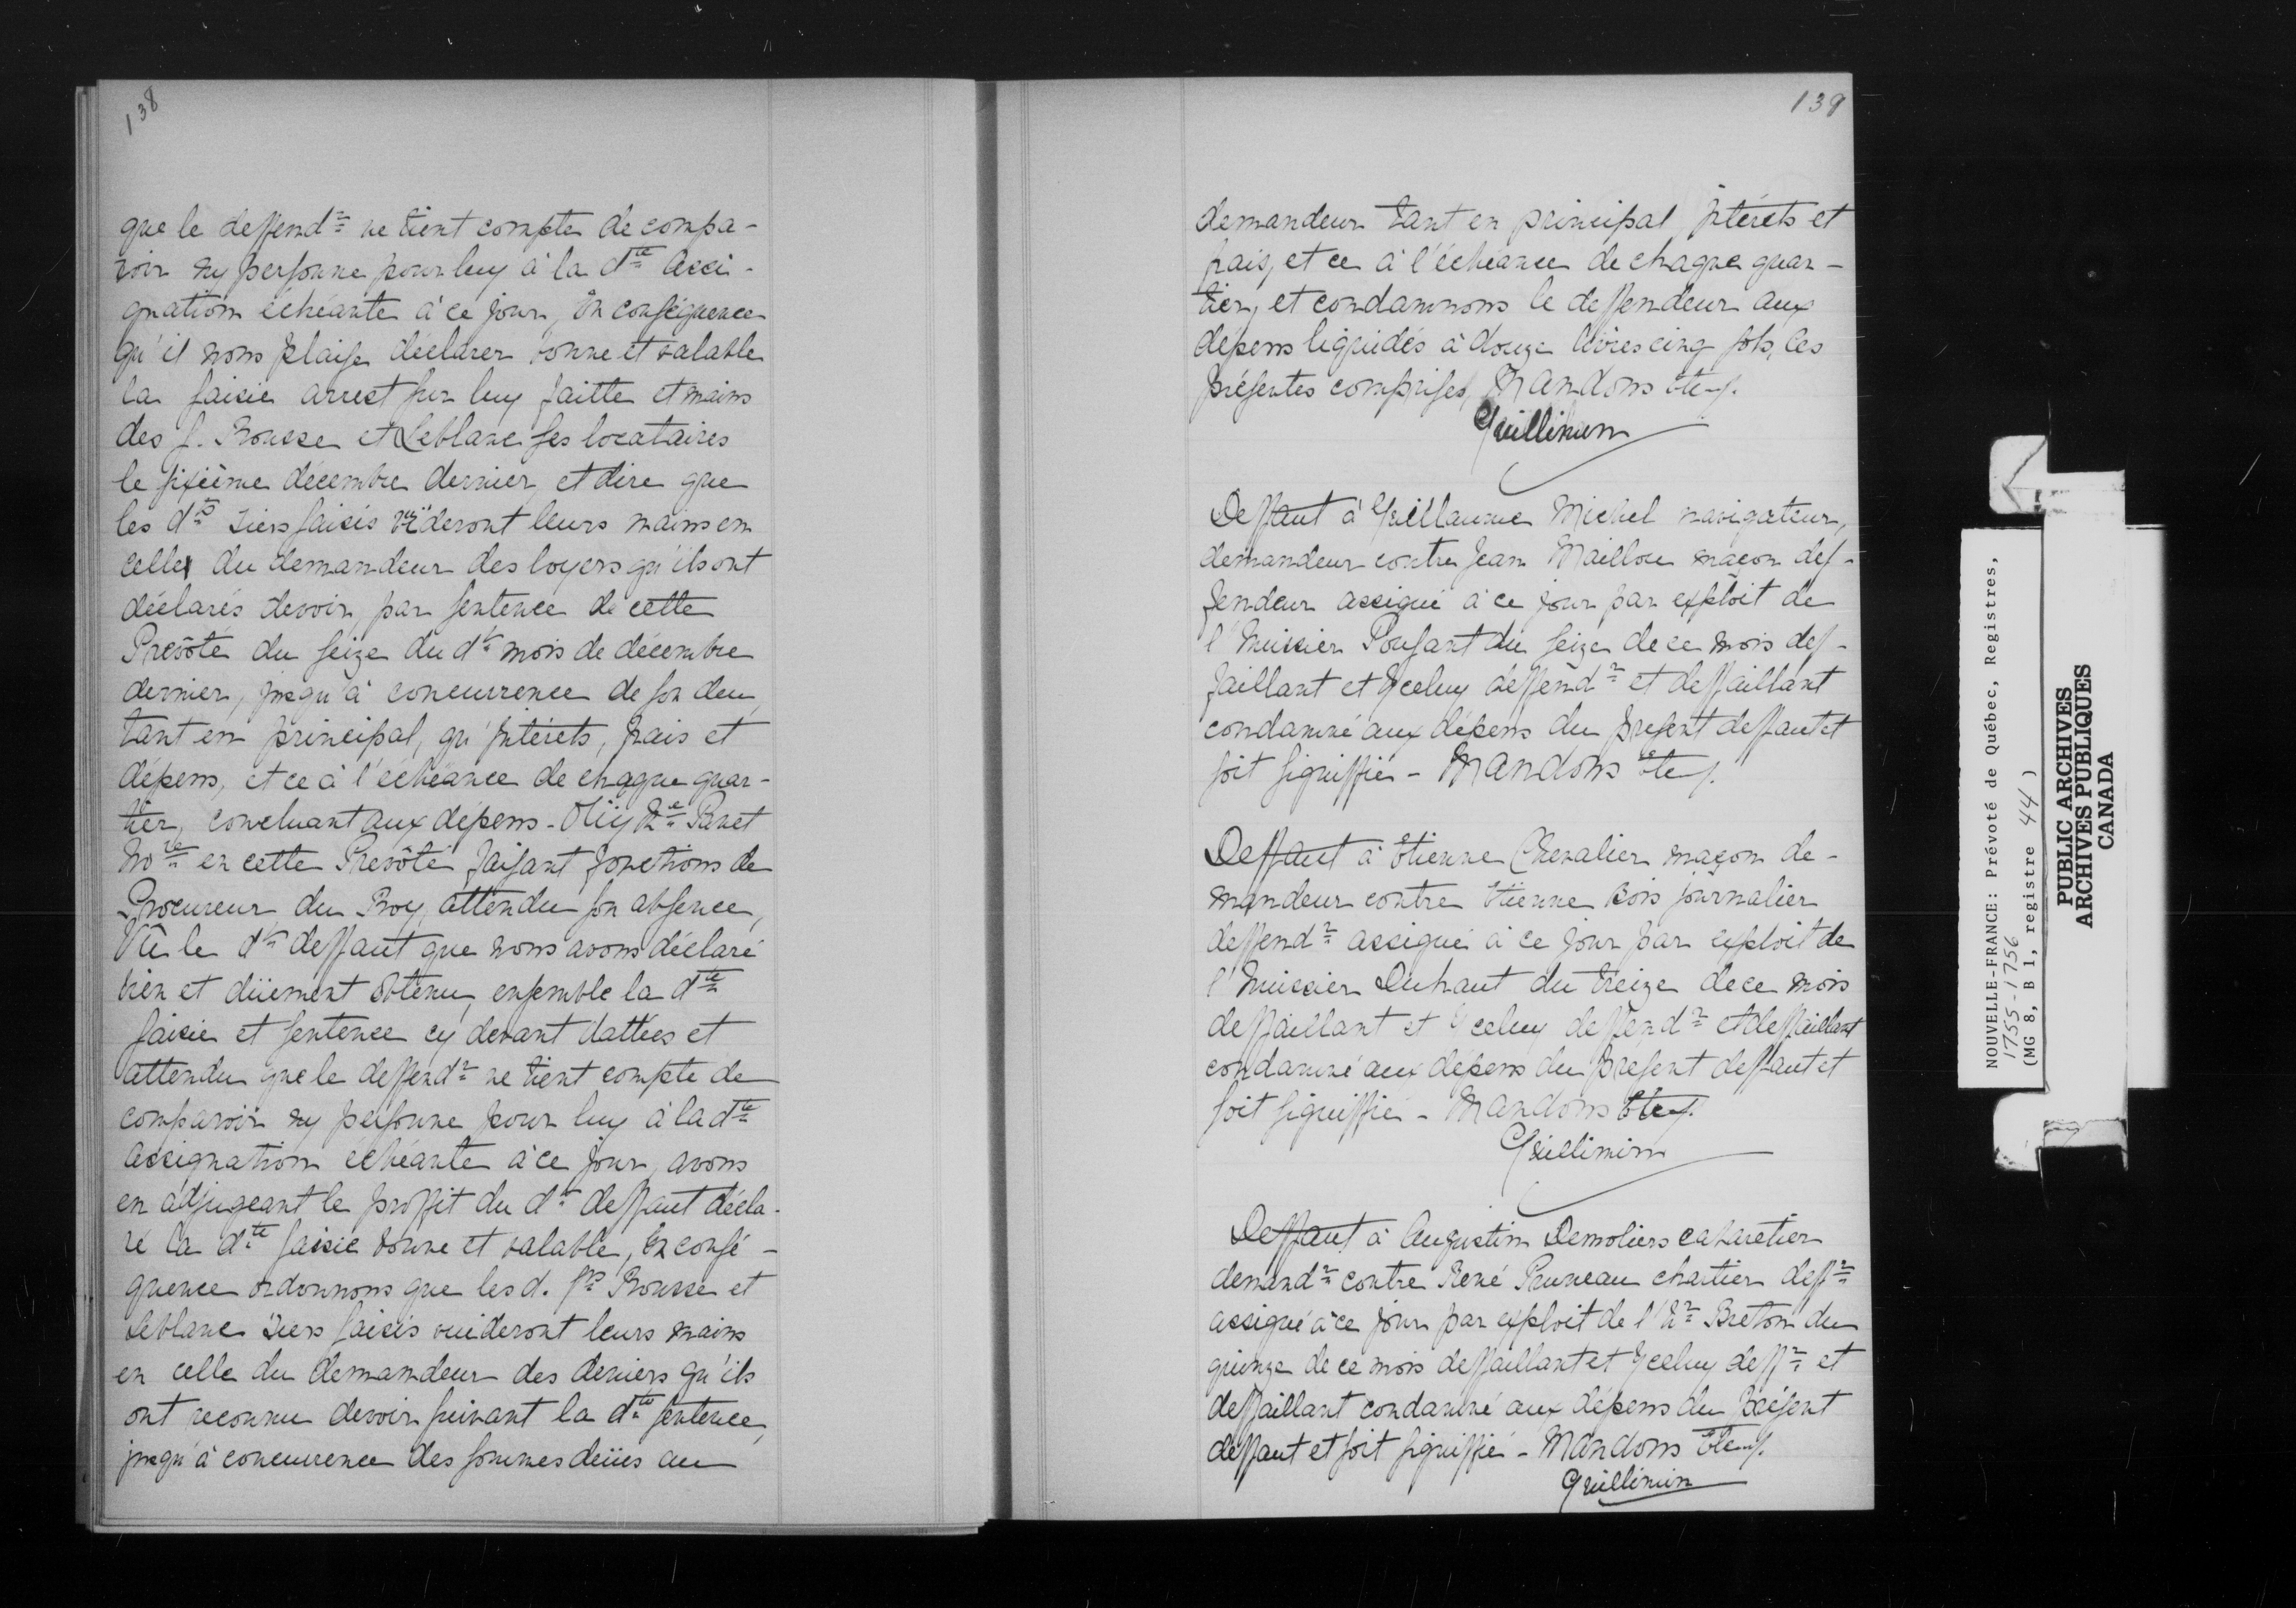 138
que le deffendr ne tient compte de compa-
roir ny personne pour luy à la dte Assi-
gnation échéante à ce jour, En conséquence
qu'il nous plaise déclarer bonne et valable
la saisie arrest sur luy faitte et mains
des s. Rousse et Leblanc ses locataires
le sixième décembre dernier, et dire que
les dts Tiers saisis vuideront leurs mains en
celles du demandeur des loyers qu'ils ont
déclarés devoir, par sentence de cette
Prevôté du seize du dt mois de décembre
dernier, jusqu'à concurrence de son deu,
tant en principal, qu'jntérets, frais et
dépens, et ce à l'échéance de chaque quar-
tier, concluant aux dépens - Oüy Me Panet
Nore en cette Prevôté faisant fonctions de
Procureur du Roy, attendu son absence,
Vû le dt deffaut que nous avons déclaré
bien et düement obtenu, ensemble la dte
saisie et sentence cy devant dattées et
attendu que le deffendr ne tient compte de
comparoir ny personne pour luy à la dte
assignation échéante à ce jour, avons
en adjugeant le proffit du dt deffaut décla-
ré la dte saisie bonne et valable, En consé-
quence ordonnons que les d. srs Rousse et
Leblanc Tiers saisis vuideront leurs mains
en celle du demandeur des deniers qu'ils
ont reconnu devoir suivant la dte sentence,
jusqu'à concurrence des sommes deües au
139
demandeur tant en principal jntérets et
frais, et ce à l'échéance de chaque quar-
tier, et condamnons le deffendeur aux
dépens liquidés à douze livres cinq sols, les
présentes comprises, Mandons etc.
Guillimin
Deffaut à Guillaume Michel navigateur,
demandeur contre Jean Maillou maçon def-
fendeur assigné à ce jour par exploit de
l'huissier Poussant du seize de ce mois def-
faillant et yceluy deffendr et deffaillant
condamné aux dépens du present deffaut et
soit signiffié - Mandons etc.
Deffaut à Etienne Chevalier maçon de-
mandeur contre Etienne Bois journalier
deffendr assigné à ce jour par exploit de
l'huissier Duhaut du treize de ce mois
deffaillant et yceluy deffendr et deffaillant
condamné aux dépens du present deffaut et
soit signiffié - Mandons etc.
Guillimin
Deffaut à Augustin Demoliers cabaretier
demandr contre René Pruneau chartier deffr
assigné à ce jour par exploit de l'hr Breton du
quinze de ce mois deffaillant et yceluy deffr et
deffaillant condamné aux dépens du présent
deffaut et soit signiffié - Mandons etc.
Guillimin
NOUVELLE-FRANCE: Prévoté de Québec, Registres,
1755-1756
(MG 8, B 1, registre 44)
PUBLIC ARCHIVES
ARCHIVES PUBLIQUES
CANADA